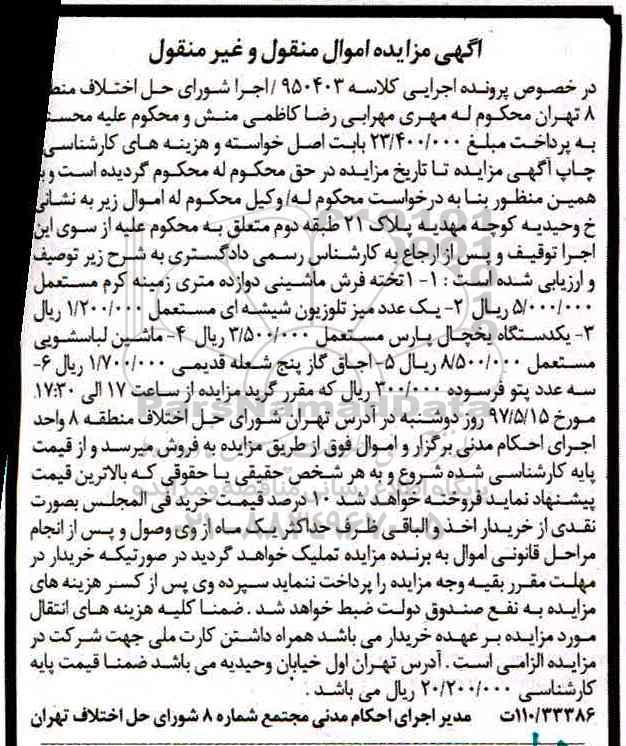 اگهی مزایده اموال منقول و غیر منقول
در خصوص پرونده اجرایی کلاسه ۹۵۰۴۰۳ /اجرا شورای حل اختلاف
۸ تهران محکوم له مهری مهرابی رضا کاظمی منش و محکوم علیه
به پرداخت مبلغ ۲۳/۴۰۰/۰۰۰ بابت اصل خواسته و هزینه های کارشناسی
چاپ آگهی مزایده تا تاریخ مزایده در حق محکوم له محکوم گردیده است
همین منظور بنا به درخواست محکوم له/ وکیل محکوم له اموال زیر به نشانی
خ وحیدیه کوچه مهدیه پلاک ۲۱ طبقه دوم متعلق به محکوم علیه از سوی این
اجرا توقیف و پس از ارجاع به کارشناس رسمی دادگستری به شرح زیر توصیف
و ارزیابی شده است : ۱- ۱تخته فرش ماشینی دوازده متری زمینه کرم مستعمل
۵/۰۰۰/۰۰۰ ریال ۲- یک عدد میز تلوزیون شیشه ای مستعمل ۱/۲۰۰/۰۰۰ ریال
۳- یکدستگاه یخچال پارس مستعمل ۳/۵۰۰/۰۰۰ ریال ۴- ماشین لباسشویی
مستعمل ۸/۵۰۰/۰۰۰ ریال ۵- اجاق گاز پنج شعله قدیمی ۱/۷۰۰/۰۰۰ ریال ۶-
سه عدد پتو فرسوده ۳۰۰/۰۰۰ ریال که مقرر گرید مزایده از ساعت ۱۷ الی ۱۷:۳۰
مورخ ۹۷/۵/۱۵ روز دوشنبه در آدرس تهران شورای حل اختلاف منطقه ۸ واحد
اجرای احکام مدنی برگزار و اموال فوق از طریق مزایده به فروش میرسد و از قیمت
پایه کارشناسی شده شروع و به هر شخص حقیقی یا حقوقی که بالاترین قیمت
پیشنهاد نماید فروخته خواهد شد ۱۰ درصد قیمت خرید فی المجلس بصورت
نقدی از خریدار اخذ و الباقی ظرف حداکثر یک ماه از وی وصول و پس از انجام
مراحل قانونی اموال به برنده مزایده تملیک خواهد گردید در صورتیکه خریدار در
مهلت مقرر بقیه وجه مزایده را پرداخت ننماید سپرده وی پس از کسر هزینه های
مزایده به نفع صندوق دولت ضبط خواهد شد . ضمنا کلیه هزینه های انتقال
مورد مزایده بر عهده خریدار می باشد همراه داشتن کارت ملی جهت شرکت در
مزایده الزامی است . آدرس تهران اول خیابان وحیدیه می باشد ضمنا قیمت پایه
کارشناسی ۲۰/۲۰۰/۰۰۰ ریال می باشد .
۱۱۰/۳۳۳۸۶ت مدیر اجرای احکام مدنی مجتمع شماره ۸ شورای حل اختلاف تهران
ParsNamadData